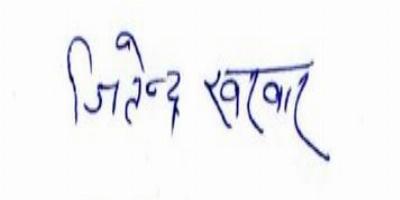 जितेन्द्र खरवार